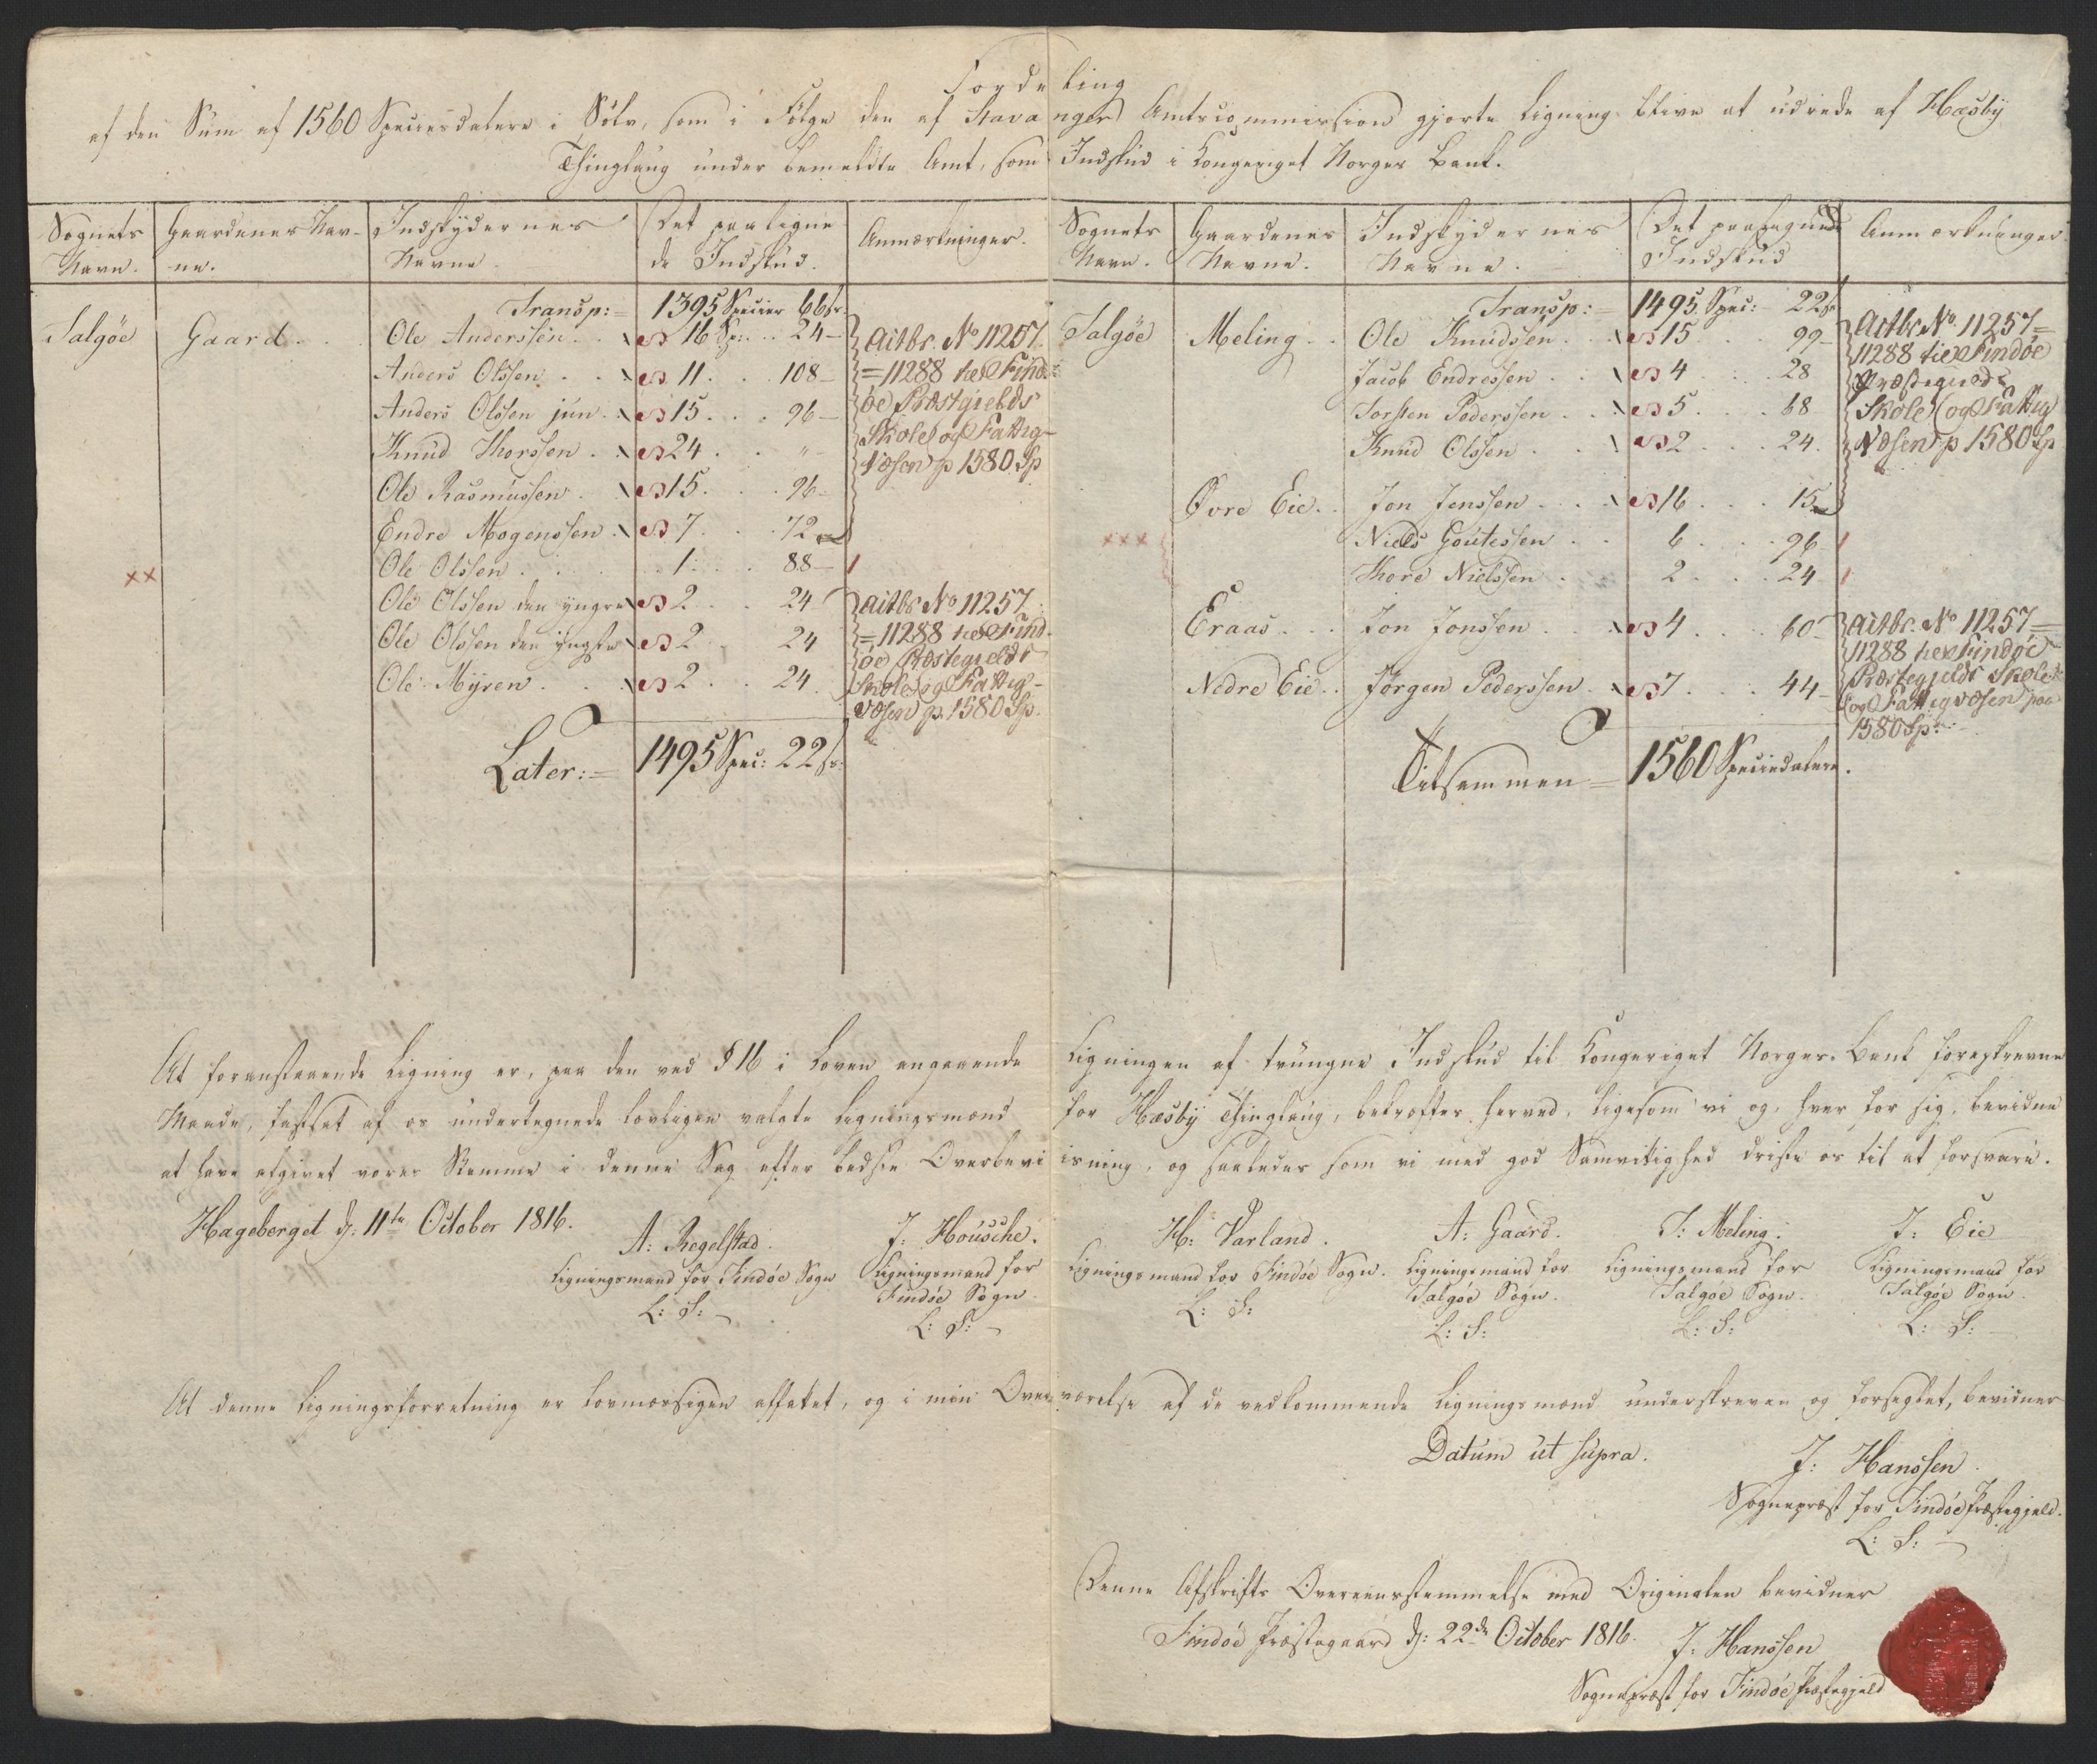 Fordeling
af den Sum af 1560 Speciesdalere i Sölv, som i Fölge den af Stavanger Amtscommission gjorte Ligning blive at udrede af Hæsby
Thinglaug under bemeldte Amt, som Indskud i Kongeriget Norges Bank.
Sognets Navn. | Gaardenes Navne. | Indskydernes Navne. | Det paalignede Indskud. | Anmærkninger.
Transp: = 1395 Specier 66 s.
Talgöe Gaard . . Ole Anderssen . . 16 Sp: . . 24 –
Anders Olssen . . 11 . . 108 –
Anders Olssen jun. . 15 . . 96 –
Knud Thorssen . . 24 . . "
Ole Rasmussen . 15 . . 96 –
Endre Mogenssen . 7 . . 72
Actbr. No 11257
= 11288 til Find-
øe Præstgjelds
Skole og Fattig-
Væsen p 1580 Sp
xx
Ole Olssen . . 1 . . 88 –
Ole Olssen den yngre 2 . . 24
Ole Olssen den yngste 2 . . 24
Ole Myren . . 2 . . 24
Actbr No 11257
= 11288 til Find-
øe Præstegields
Skole og Fattig-
væsen p. 1580 Sp.
Later: = 1495 Spec: 22 s.
Sognets Navn. | Gaardenes Navne. | Indskydernes Navne. | Det paalignede Indskud | Anmærkninger.
Transp: = 1495 Spec: 22 s.
Talgöe Meling . . Ole Knudssen . . 15 . . 99 –
Jacob Endressen . . 4 . . 28
Torsten Pederssen . . 5 . . 68
Knud Olssen . . 2 . . 24.
Øvre Eie . . Jon Jenssen . . 16 . . 15
Actbr No. 11257 =
11288 til Findøe
Præstegields
Skole og Fattig
Væsen p 1580 Sp
xxx
Niels Goutessen . . 6 . . 96
Thore Nielssen . . 2 . . 24
Eraas . . Jon Jonssen . . 4 . . 60
Nedre Eie . . Jörgen Pederssen . 7 . . 44 –
Actbr. No 11257 =
11288 til Findøe
Præstegjelds Skole
og Fattigvæsen paa
1580 Sp:
Tilsammen = 1560 Speciedalere.
At foranstaaende Ligning er, paa den ved § 16 i Loven angaaende Ligningen af tvungne Indskud til Kongeriget Norges Bank foreskrevne
Maade, fastsat af os undertegnede lovligen valgte Ligningsmænd for Hæsby Thinglaug, bekræftes herved, ligesom vi og, hver for sig, bevidne
at have afgivet vores Stemme i denne Sag efter bedste Overbeviisning, og saaledes som vi med god Samvittighed driste os til at forsvare.
Hageberget d: 11te October 1816.
A: Regelstad.
Ligningsmand for Findöe Sogn
L: S:
J: Housche.
Ligningsmand for
Findöe Sogn.
L: S:
H: Varland.
Ligningsmand for Findöe Sogn.
L: S:
A: Gaard.
Ligningsmand for
Talgöe Sogn.
L: S:
T: Meling.
Ligningsmand for
Talgöe Sogn.
L: S:
J: Eie
Ligningsmand for
Talgöe Sogn.
L: S:
At denne Ligningsforretning er lovmæssigen affattet, og i min Overværelse af de vedkommende Ligningsmænd underskreven og forseglet, bevidner
Datum ut supra.
J: Hanssen.
Sognepræst for Findöe Præstegjeld.
L: S:
Denne Afskrifts Overeensstemmelse med Originalen bevidner
Findöe Præstegaard d: 22de October 1816.
J: Hanssen
Sognepræst for Findöe Præstegjeld